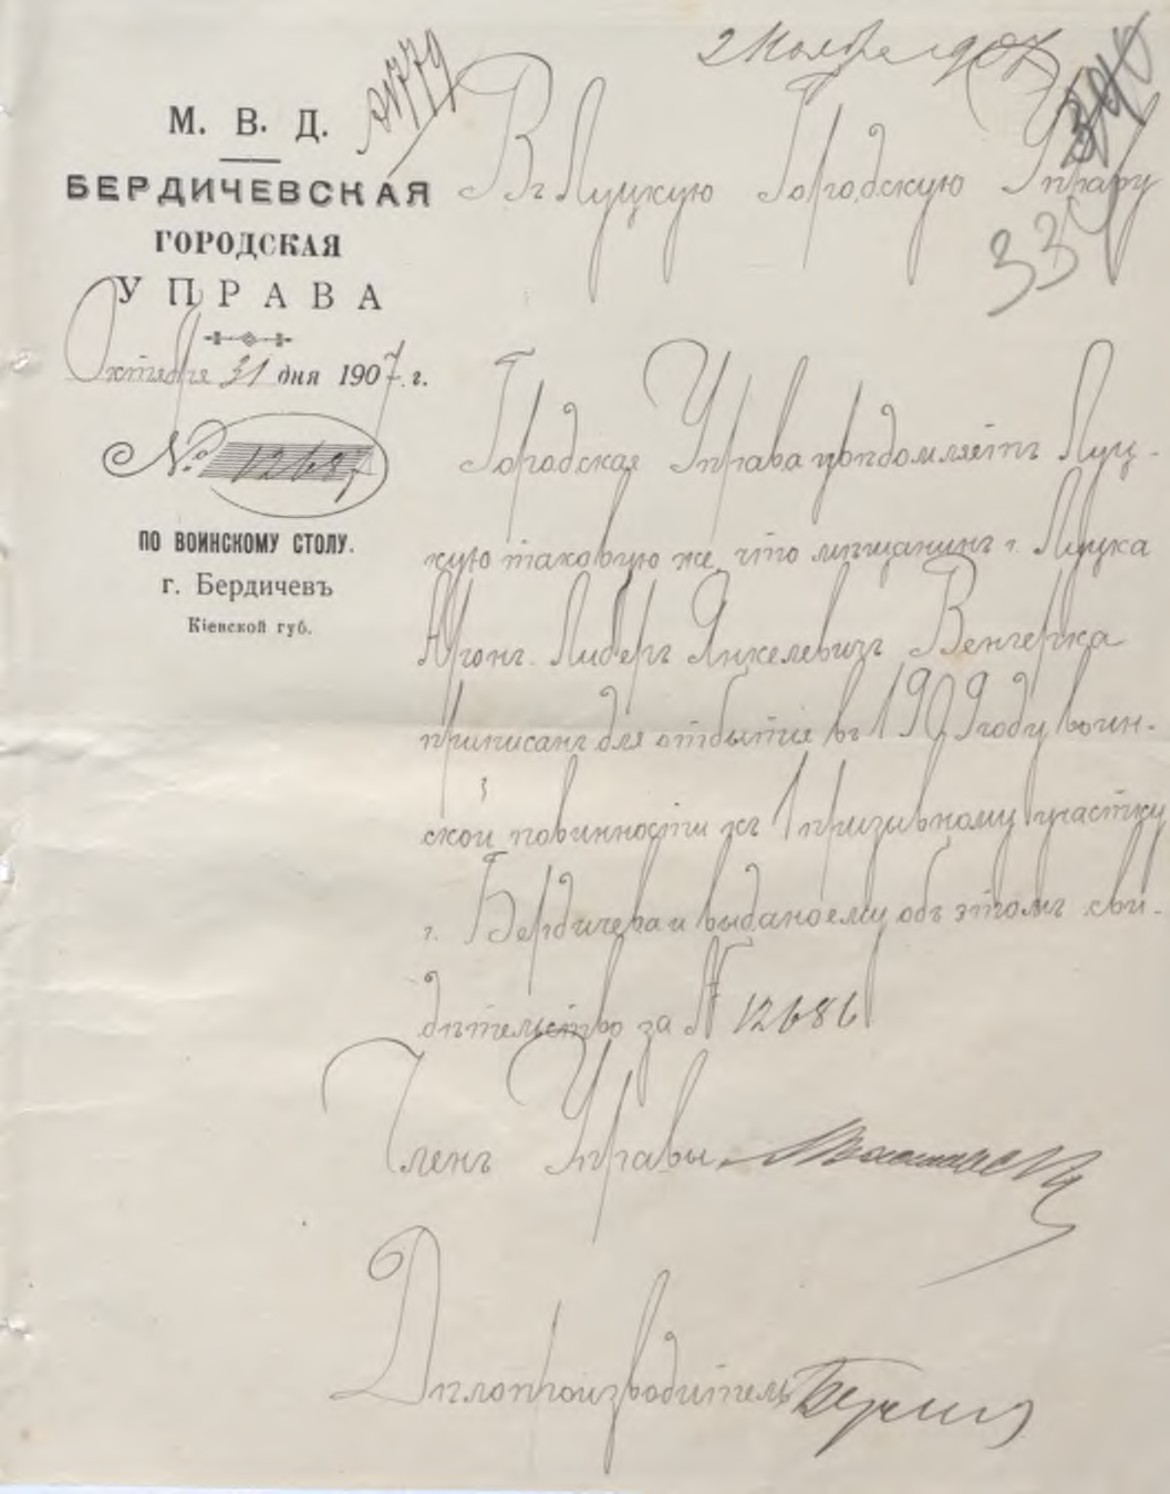 2 Ноября 1907
№ 779
340
М. В. Д.
БЕРДИЧЕВСКАЯ
ГОРОДСКАЯ
УПРАВА
Октября 31 дня 1907 г.
№ 12687
ПО ВОИНСКОМУ СТОЛУ.
г. Бердичевъ
Кіевской губ.
Въ Луцкую Городскую Управу
334
Городская Управа увѣдомляетъ Луц-
кую таковую же, что мѣщанинъ г. Луцка
Аронъ Либеръ Янкелевичъ Венгерка
приписанъ для отбытія въ 1909 году воин-
ской повинности къ 1 призывному участку
г. Бердичева и выдано ему объ этомъ сви-
дѣтельство за № 12686
Членъ Управы
Дѣлопроизводитель